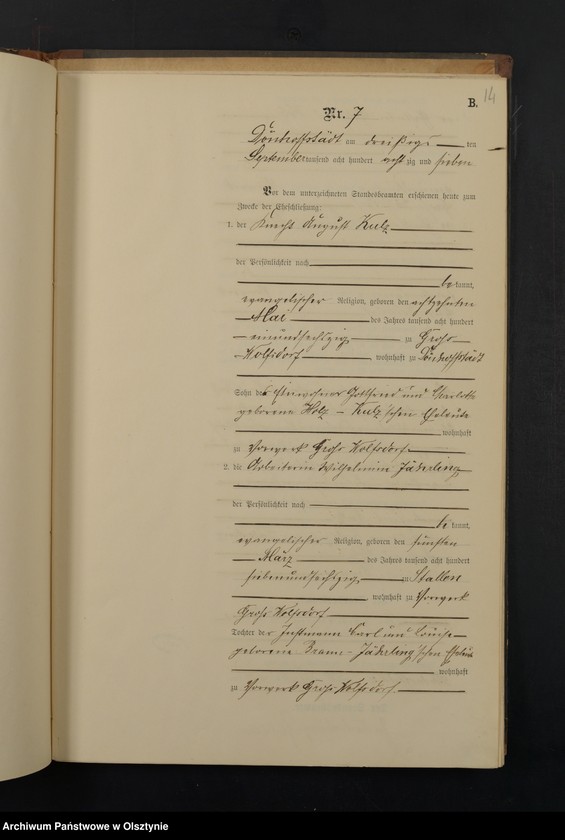 14
B.
Nr. 7
Dönhoffstädt am dreißigsten
September tausend acht hundert achtzig und sieben
Vor dem unterzeichneten Standesbeamten erschienen heute zum
Zwecke der Eheschließung:
1. der Knecht August Kulz
der Persönlichkeit nach
bekannt,
evangelischer Religion, geboren den achtzehnten
Mai des Jahres tausend acht hundert
einundsechzig zu Groß
Wolfsdorf, wohnhaft zu Dönhoffstädt
Sohn des Einwohner Gottfried und Charlotte
geborene Holz - Kulz'schen Eheleute
wohnhaft
zu Vorwerk Groß Wolfsdorf
2. die Arbeiterin Wilhelmine Jäckerling
der Persönlichkeit nach
bekannt,
evangelischer Religion, geboren den fünften
März des Jahres tausend acht hundert
siebenundsechzig zu Stallen
, wohnhaft zu Vorwerk
Groß Wolfsdorf
Tochter des Instmann Carl und Louise
geborene - Jäckerling'schen Eheleute
, wohnhaft
zu Vorwerk Groß Wolfsdorf.
Archiwum Państwowe w Olsztynie